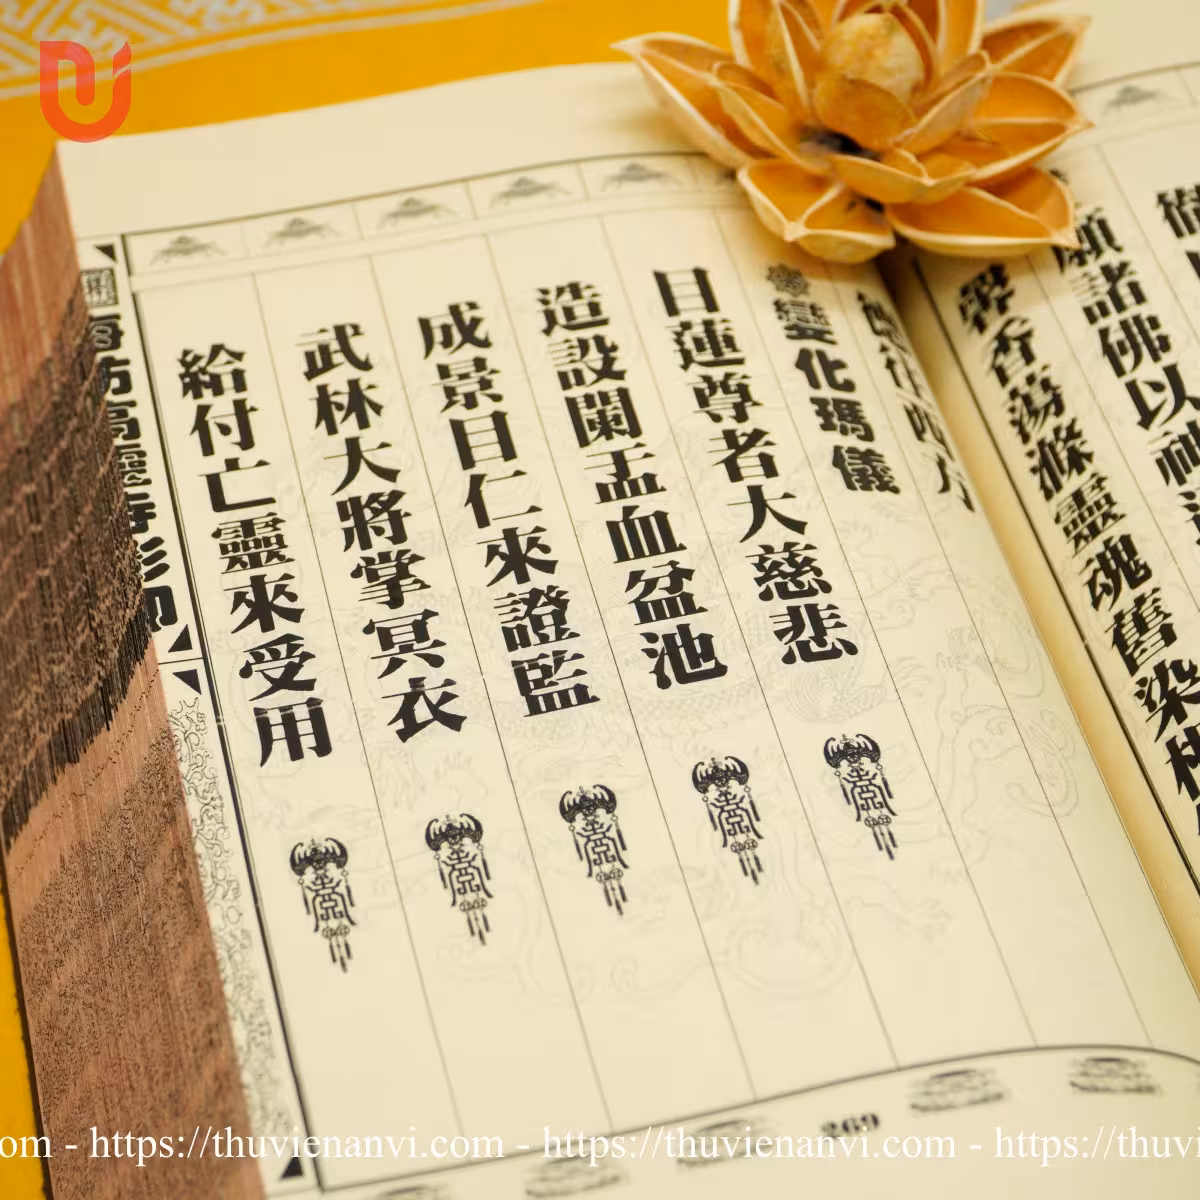 願諸佛以神
香蕩滌靈魂舊染
變化瑪儀
目蓮尊者大慈悲
造設闌盂血盆池
成景目仁來證監
武林大將掌冥衣
給付亡靈來受用
269
https://thuvienanvi.com - https://thuvienanvi.com